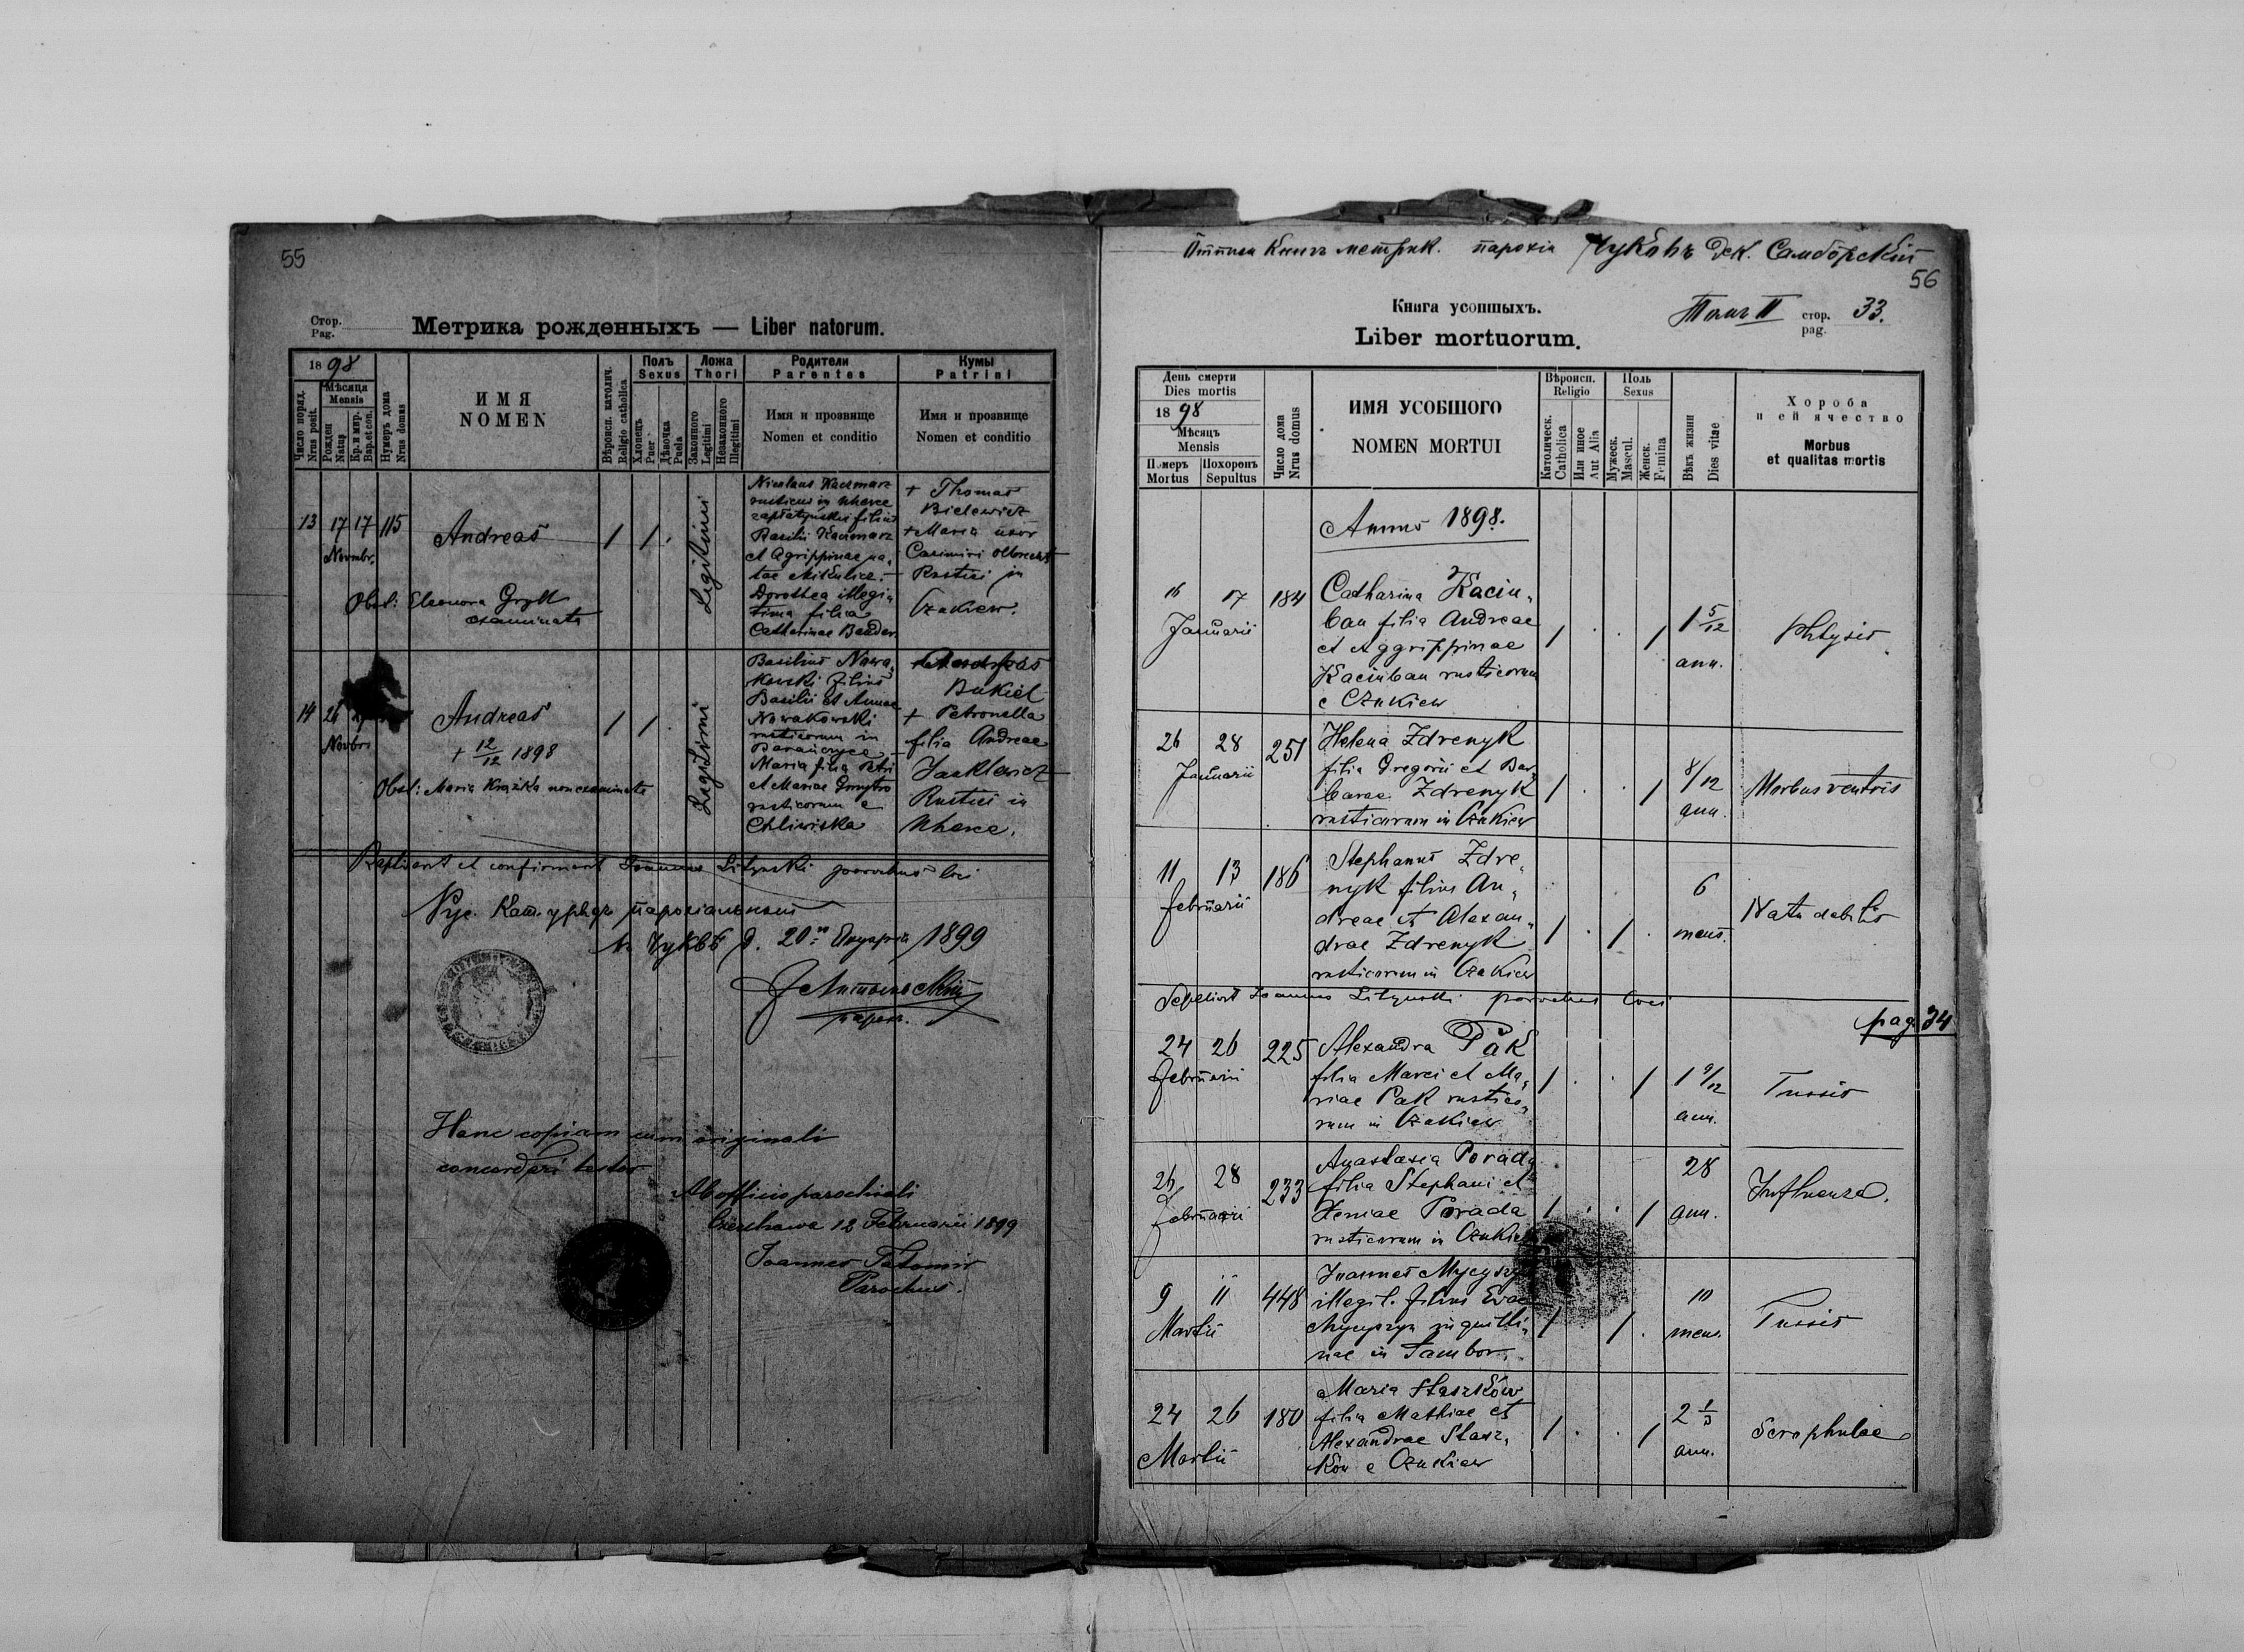 55
Стор.
Pag.
Метрика рожденныхъ — Liber natorum.
1898
Мѣсяця
Mensis
Число поряд.
Nrus posit.
Рожден
Natus
Кр. и мѵр.
Bap. et con.
Нумеръ дома
Nrus domus
ИМЯ
NOMEN
Вѣроисп. католич.
Religio catholica
Полъ
Sexus
Хлопецъ
Puer
Дѣвочка
Puela
Ложа
Thori
Законного
Legitimi
Незаконного
Illegitimi
Родители
Parentes
Имя и прозвище
Nomen et conditio
Кумы
Patrini
Имя и прозвище
Nomen et conditio
13 17 17 115
Novmbr.
Andreas
1 1 .
Legitimi
Nicolaus Kaczmarz
rusticus in Uherce
zapłatyńskie filius
Basilii Kaczmarz
et Agrippinae na,
tae Mikulicz. —
Dorothea illegi,
tima filia
Catharinae Bander
+ Thomas
Bielewicz
+ Maria uxor
Casimiri Olbrecht
Rustici in
Czukiew.
Obst: Eleonora Gryll
examinata
14 26 27
Novbri
Andreas
+ 12/12 1898
1 1 .
Legitimi
Basilius Nowa,
kowski filius
Basilii et Annae
Nowakowski
rusticorum in
Barańczyce —
Maria filia Petri
et Mariae Dmytro
rusticorum e
Chliwiska
Andreas
Bukiel
+ Petronella
filia Andreae
Rustici in
Uherce.
Obst: Maria Krążka non examinata
Baptisavit et confirmavit Joannes Lityński parochus loci
Рус. Кат. урядъ парохіальный
Въ Чуквѣ д. 20го Януарія 1899
парох.
Hanc copiam cum originali
concordari testor
Ab officio parochiali
Czerchawa 12 Februarii 1899
Joannes Tatomir
Parochus.
Отписи Книгъ метрик. парохіи Чуковъ дек. Самборскій
56
Книга усопшыхъ.
Liber mortuorum.
Томъ II стор. pag. 33.
День смерти
Dies mortis
1898
Мѣсяцъ
Mensis
Померъ
Mortus
Похоронъ
Sepultus
Число дома
Nrus domus
ИМЯ УСОБШОГО
NOMEN MORTUI
Вѣроисп.
Religio
Католическ.
Catholica
Или иное
Aut Alia
Поль
Sexus
Мужеск.
Mascul.
Женск.
Femina
Вѣкъ жизни
Dies vitae
Хороба
и ей ячество
Morbus
et qualitas mortis
Annus 1898.
16 17 184
Januarii
Catharina Kaciu,
ban filia Andreae
et Aggrippinae
Kaciuban rusticorum
e Czukiew
1 . . 1
1 5/12
ann.
Phtysis
26 28 251
Januarii
Helena Zdrenyk
filia Gregorii et Bar,
barae Zdrenyk
rusticorum in Czukiew
1 . . 1
8/12
ann.
Morbus ventris
11 13 186
Februarii
Stephanus Zdre,
nyk filius An,
dreae et Alexan,
drae Zdrenyk
rusticorum in Czukiew
1 . 1 .
6
mens.
Natu debilis
Sepelivit Joannes Lityński parochus loci
pag. 34
24 26 225
Februarii
Alexandra Pak
filia Marci et Ma,
riae Pak rustico,
rum in Czukiew
1 . . 1
1 9/12
ann.
Tussis
26 28 233
Februarii
Anastasia Porada
filia Stephani et
Xeniae Porada
rusticorum in Czukiew
1 . . 1
28
ann.
Influenza.
9 11 448
Martii
Joannes Mycyszyn
illegit. filius Evae
Mycyszyn inquili,
nae in Sambor.
1 1 .
10
mens.
Tussis
24 26 180
Martii
Maria Staszków
filia Mathiae et
Alexandrae Stasz,
ków e Czukiew
1 . . 1
2 1/3
ann.
Scrophulae